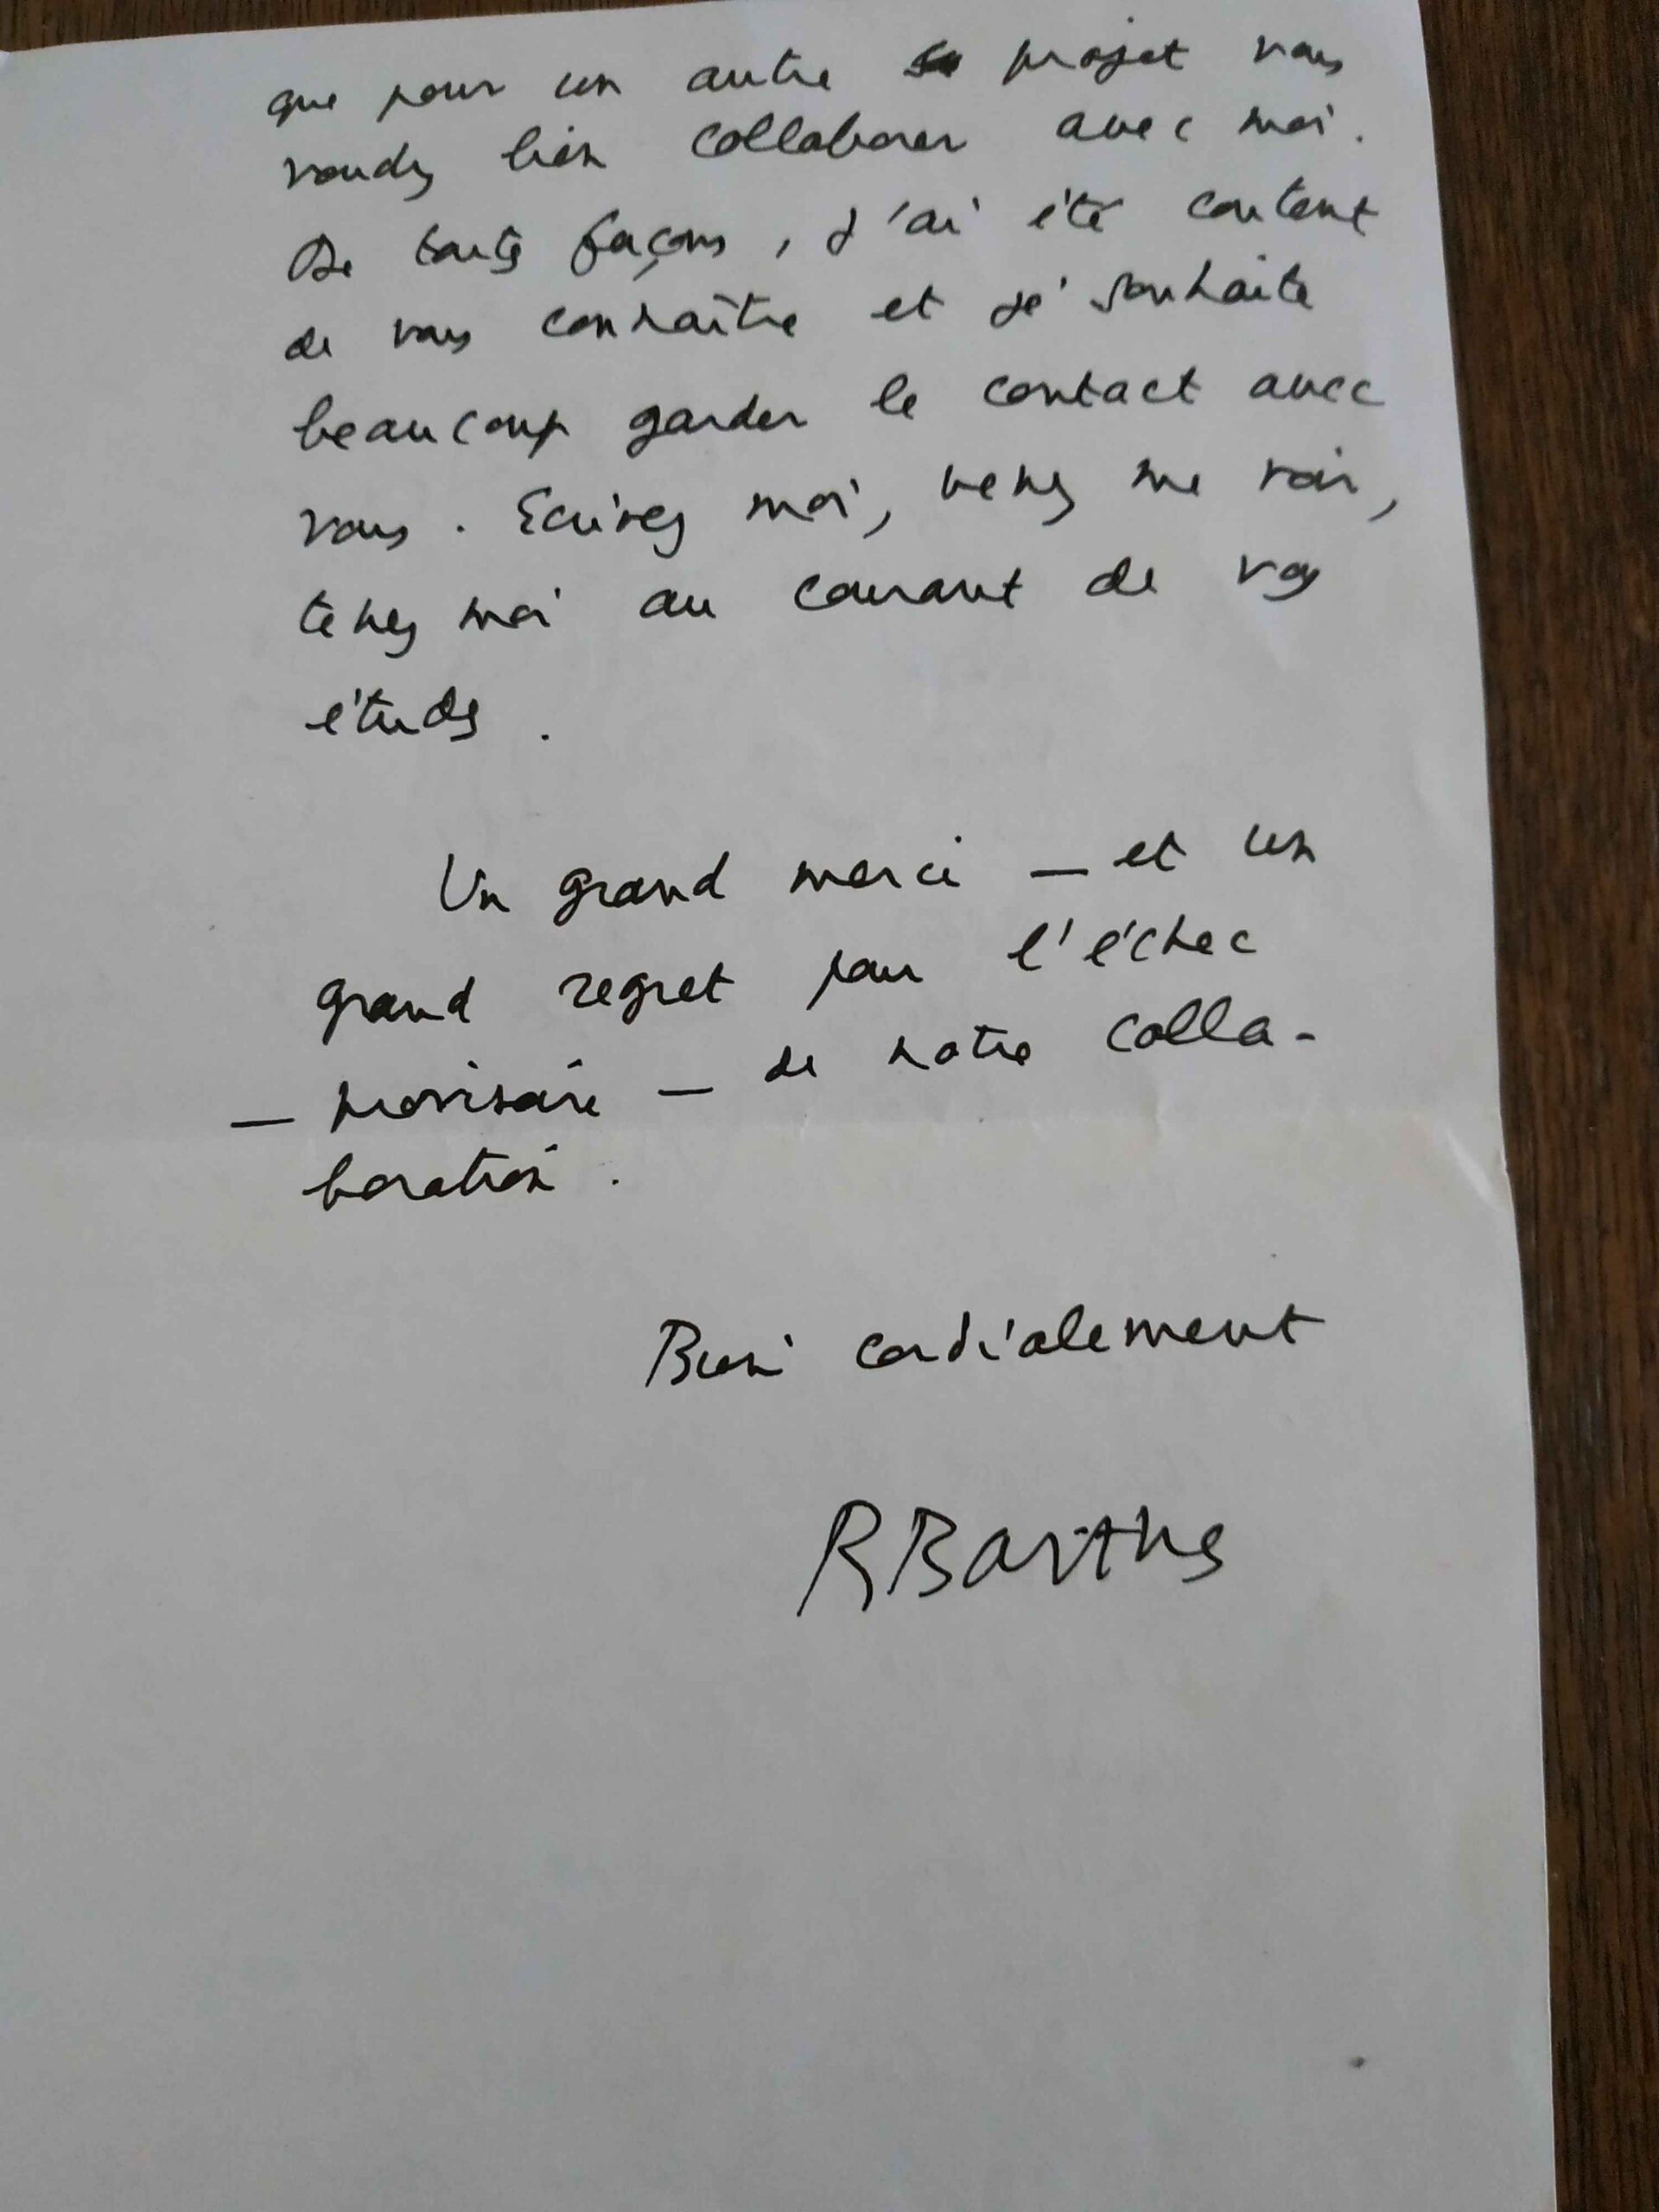 que pour un autre projet vous
voudrez bien collaborer avec moi.
De toutes façons, j'ai été content
de vous connaître et je souhaite
beaucoup garder le contact avec
vous. Ecrivez moi, venez me voir,
tenez moi au courant de vos
études.
Un grand merci — et un
grand regret pour l'échec
— provisoire — de notre colla-
boration.
Bien cordialement
RBarthes